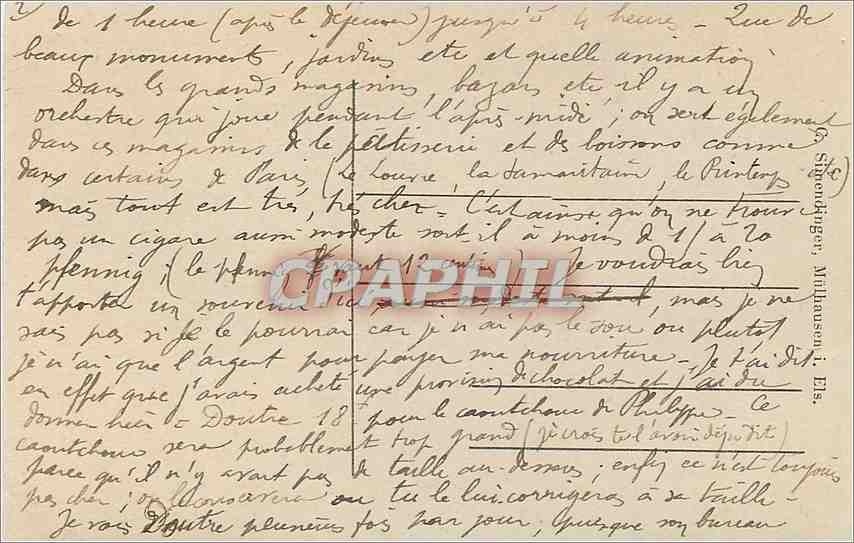 2)
de 1 heure (après le déjeuner) jusqu'à 4 heures - Que de
beaux monuments, jardins etc et quelle animation
Dans les grands magasins, bazars etc il y a un
orchestre qui joue pendant l'après-midi ; on sert également
dans ces magasins de la pâtisserie et des boissons comme
dans certains de Paris (Le Louvre, la Samaritaine, le Printemps etc)
mais tout est très, très cher = C'est ainsi qu'on ne trouve
pas un cigare aussi modeste soit-il à moins de 15 à 20
pfennig ; (le pfennig vaut 12 centimes) Je voudrais bien
t'apporter un souvenir d'ici, mais je ne
sais pas si je le pourrai car je n'ai pas le sou ou plutôt
je n'ai que l'argent pour payer ma nourriture - Je t'ai dit
en effet que j'avais acheté une provision de chocolat et j'ai dû
donner hier = Doutre 18 pour le caoutchouc de Philippe - Ce
caoutchouc sera probablement trop grand (je crois te l'avoir déjà dit)
parce qu'il n'y avait pas de taille au-dessous ; enfin ce n'est toujours
pas cher ; on le conservera ou tu le lui corrigeras à sa taille -
Je vois Doutre plusieurs fois par jour, puisque son bureau
C. Sigmendinger, Mülhausen i. Els.
CPAPHIL